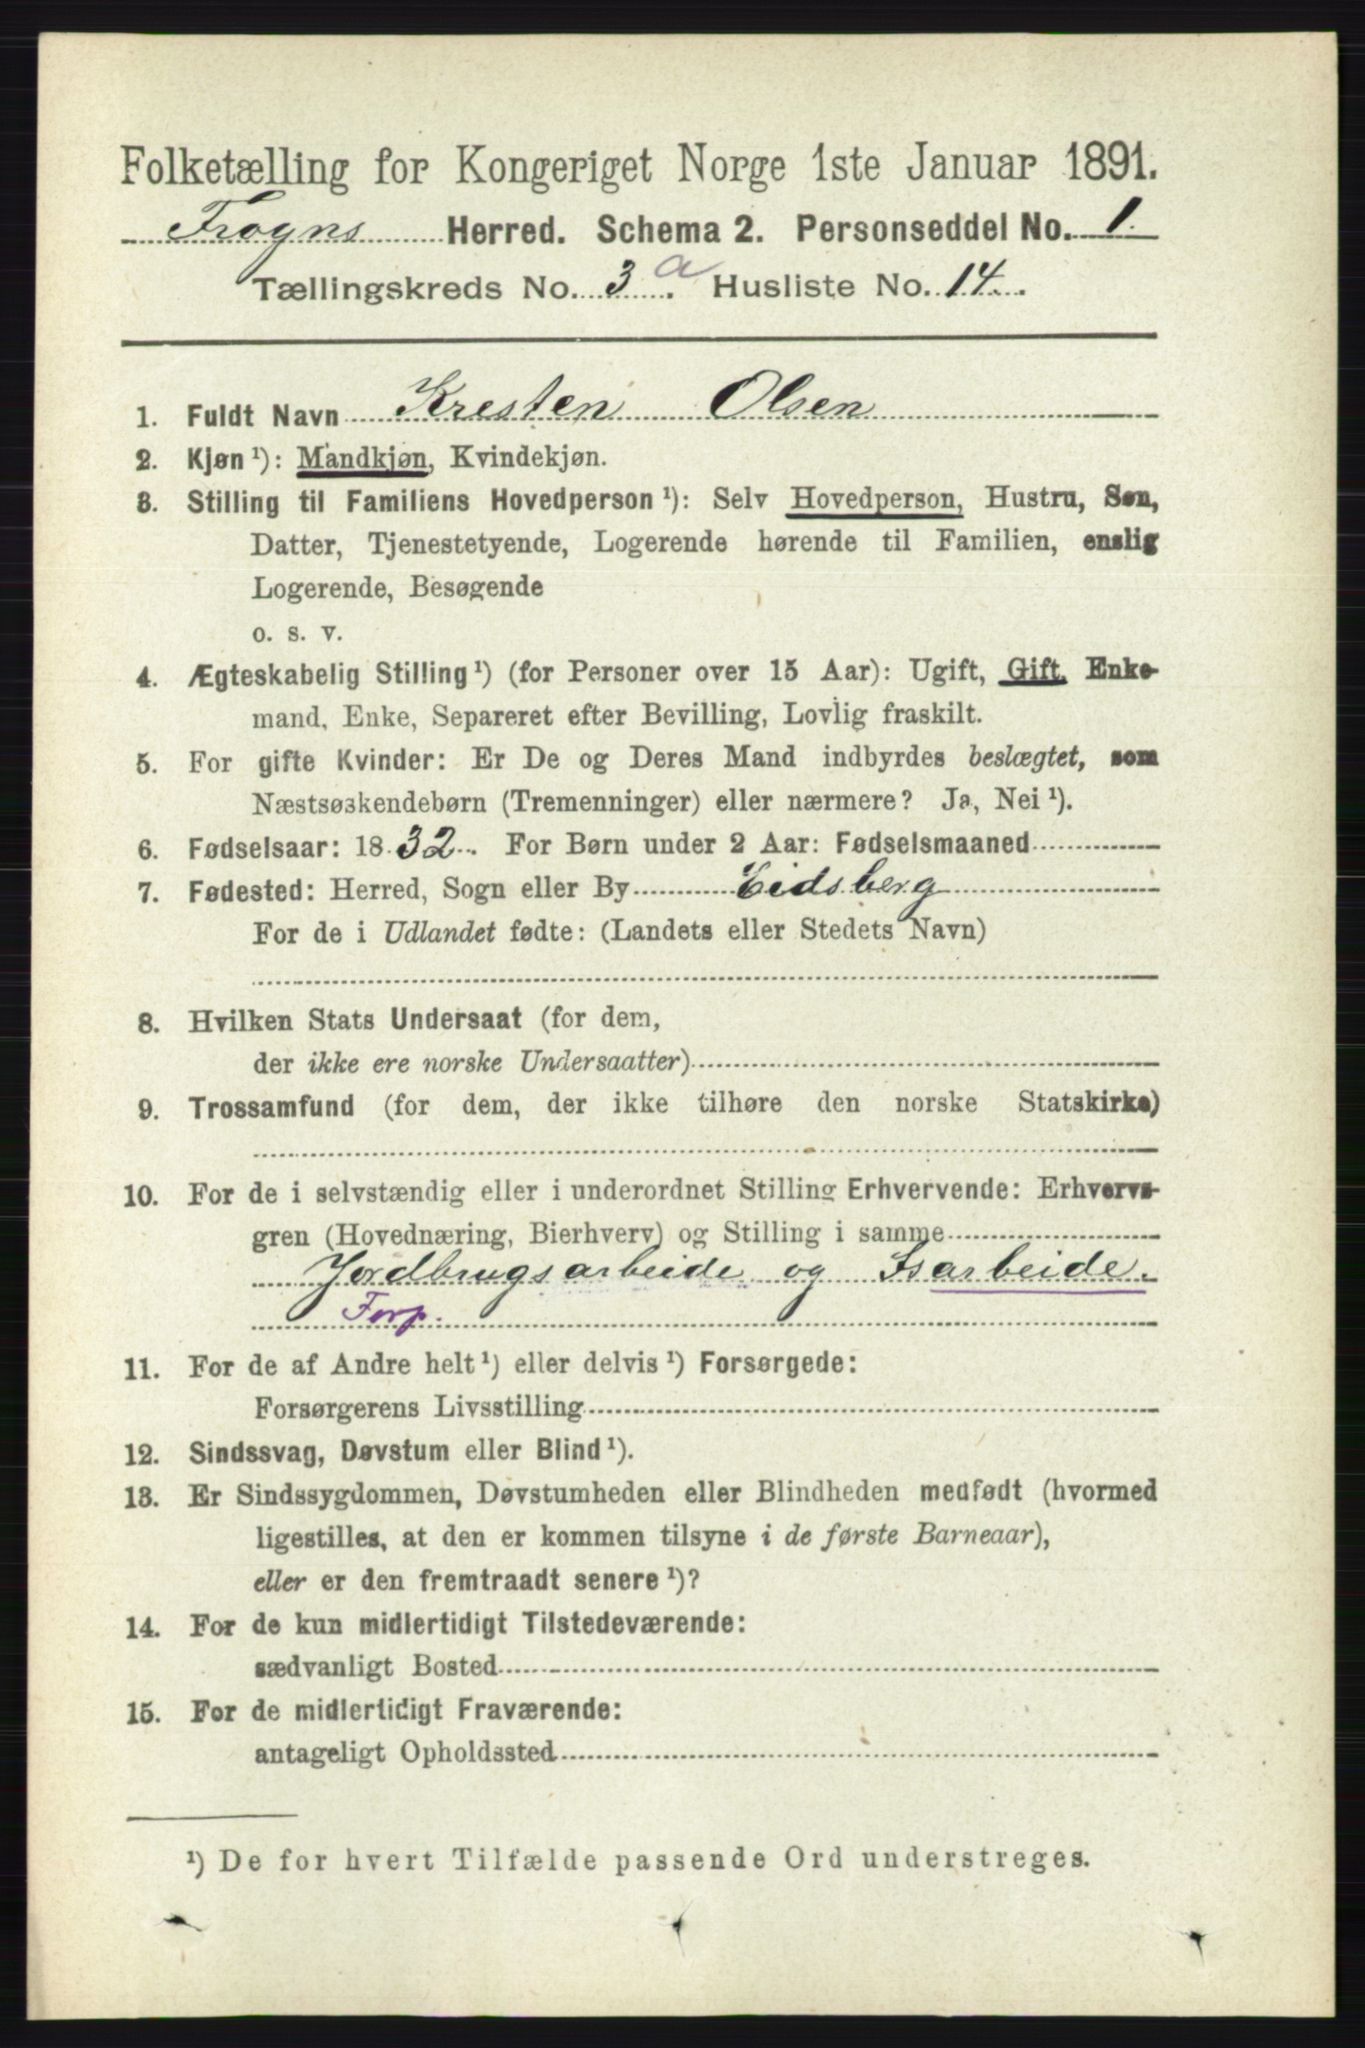 Folketælling for Kongeriget Norge 1ste Januar 1891.
Frogns Herred. Schema 2. Personseddel No. 1.
Tællingskreds No. 3a. Husliste No. 14.
1. Fuldt Navn Kresten Olsen
2. Kjøn ¹): Mandkjøn, Kvindekjøn.
3. Stilling til Familiens Hovedperson ¹): Selv Hovedperson, Hustru, Søn,
Datter, Tjenestetyende, Logerende hørende til Familien, enslig
Logerende, Besøgende
o. s. v.
4. Ægteskabelig Stilling ¹) (for Personer over 15 Aar): Ugift, Gift, Enke-
mand, Enke, Separeret efter Bevilling, Lovlig fraskilt.
5. For gifte Kvinder: Er De og Deres Mand indbyrdes beslægtet, som
Næstsøskendebørn (Tremenninger) eller nærmere? Ja, Nei ¹).
6. Fødselsaar: 1832. For Børn under 2 Aar: Fødselsmaaned
7. Fødested: Herred, Sogn eller By Eidsberg
For de i Udlandet fødte: (Landets eller Stedets Navn)
8. Hvilken Stats Undersaat (for dem,
der ikke ere norske Undersaatter)
9. Trossamfund (for dem, der ikke tilhøre den norske Statskirke)
10. For de i selvstændig eller i underordnet Stilling Erhvervende: Erhvervs-
gren (Hovednæring, Bierhverv) og Stilling i samme
Jordbrugsarbeide og Isarbeide.
Forp.
11. For de af Andre helt ¹) eller delvis ¹) Forsørgede:
Forsørgerens Livsstilling
12. Sindssvag, Døvstum eller Blind ¹).
13. Er Sindssygdommen, Døvstumheden eller Blindheden medfødt (hvormed
ligestilles, at den er kommen tilsyne i de første Barneaar),
eller er den fremtraadt senere ¹)?
14. For de kun midlertidigt Tilstedeværende:
sædvanligt Bosted
15. For de midlertidigt Fraværende:
antageligt Opholdssted
¹) De for hvert Tilfælde passende Ord understreges.